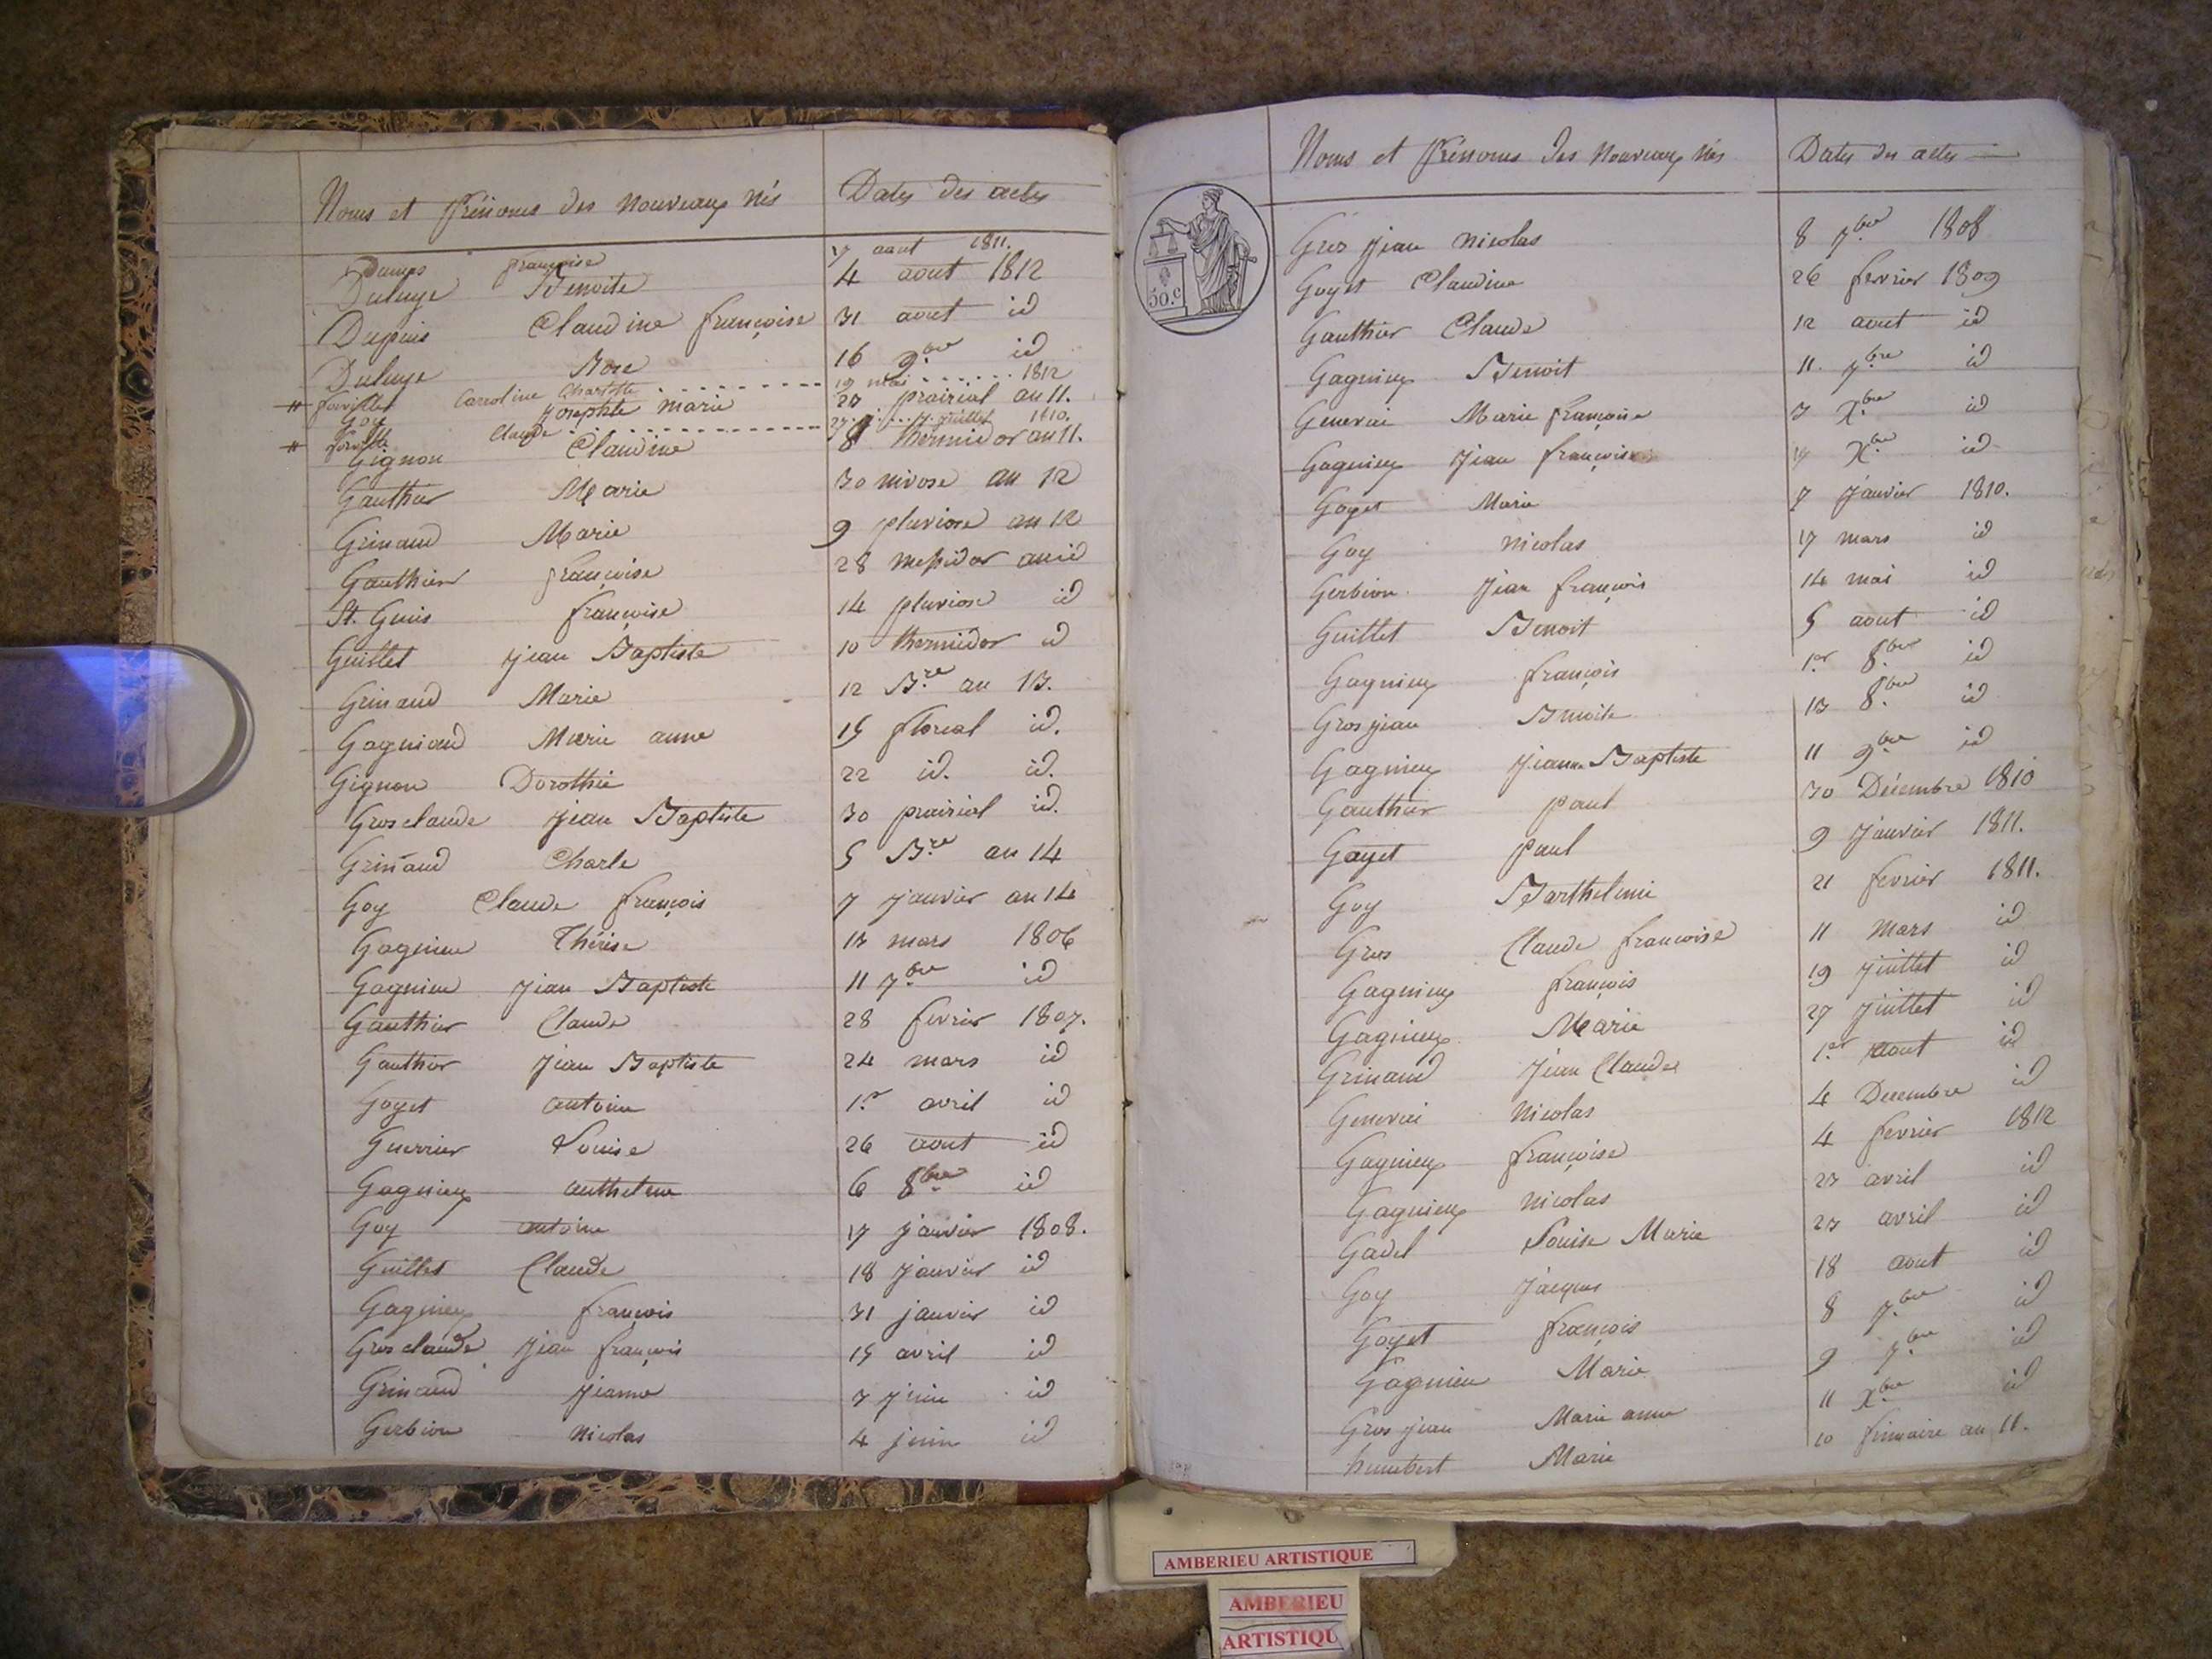 Noms et Prénoms des Nouveaux nés Dates des actes
Dumas françoise 17 aout 1811.
Duluye Benoite 4 aout 1812
Dupuis Claudine françoise 31 aout id
Duluye Rose 16 9.bre id
forvillet Carroline Charlotte 19 mai 1812
Goy josephte marie 27 prairial an 11.
Claude juillet 1810.
Gignon Claudine 8 thermidor an 11.
Gauthier Marie 30 nivose an 12
Grinand Marie 9 pluviose an 12
Gauthier françoise 28 messidor an id
St. Genis françoise 14 pluviose id
Guillet jean Baptiste 10 thermidor id
Grinand Marie 12 B.re an 13.
Gagniand Marie anne 15 floreal id.
Gignon Dorothée 22 id. id.
Grosclaude jean Baptiste 30 prairial id.
Grinand Charle 5 B.re an 14
Goy Claude françois 7 janvier an 14
Gagnieu Thérèse 13 mars 1806
Gagnieu jean Baptiste 11 7.bre id
Gauthier Claude 28 fevrier 1807.
Gauthier jean Baptiste 24 mars id
Goyet antoine 1.er avril id
Guerrier Louise 26 aout id
Gagnieux anthelme 6 8.bre id
Goy antoine 17 janvier 1808.
Guillet Claude 18 janvier id
Gagnieux françois 31 janvier id
Grosclaude jean françois 15 avril id
Grinand jeanne 7 juin id
Gerbion nicolas 4 juin id
Noms et Prénoms des Nouveaux nés Dates des actes
50.c
Gros jean nicolas 8 7.bre 1808
Goyet Claudine 26 fevrier 1809
Gauthier Claude 12 aout id
Gagnieux Benoit 11. 7.bre id
Genevai Marie françoise 7 X.bre id
Gagnieux jean françois 17 X.bre id
Goyet Marie 7 janvier 1810.
Goy nicolas 17 mars id
Gerbion jean françois 14 mai id
Guillet Benoit 5 aout id
Gagnieux françois 1.er 8.bre id
Gros jean Benoite 13 8.bre id
Gagnieux jeanne Baptiste 11 9.bre id
Gauthier paul 30 Décembre 1810
Goyet paul 9 janvier 1811.
Goy Barthelemi 21 fevrier 1811.
Gros Claude françoise 11 mars id
Gagnieux françois 19 juillet id
Gagnieux Marie 27 juillet id
Grinand jean Claude 1.er aout id
Genevai nicolas 4 Decembre id
Gagnieux françoise 4 fevrier 1812
Gagnieux nicolas 23 avril id
Gadel Louise Marie 23 avril id
Goy jacques 18 aout id
Goyet françois 8 7.bre id
Gagnieu Marie 9 7.bre id
Gros jean Marie anne 11 X.bre id
humbert Marie 10 frimaire an 11.
AMBERIEU ARTISTIQUE
AMBERIEU
ARTISTIQU